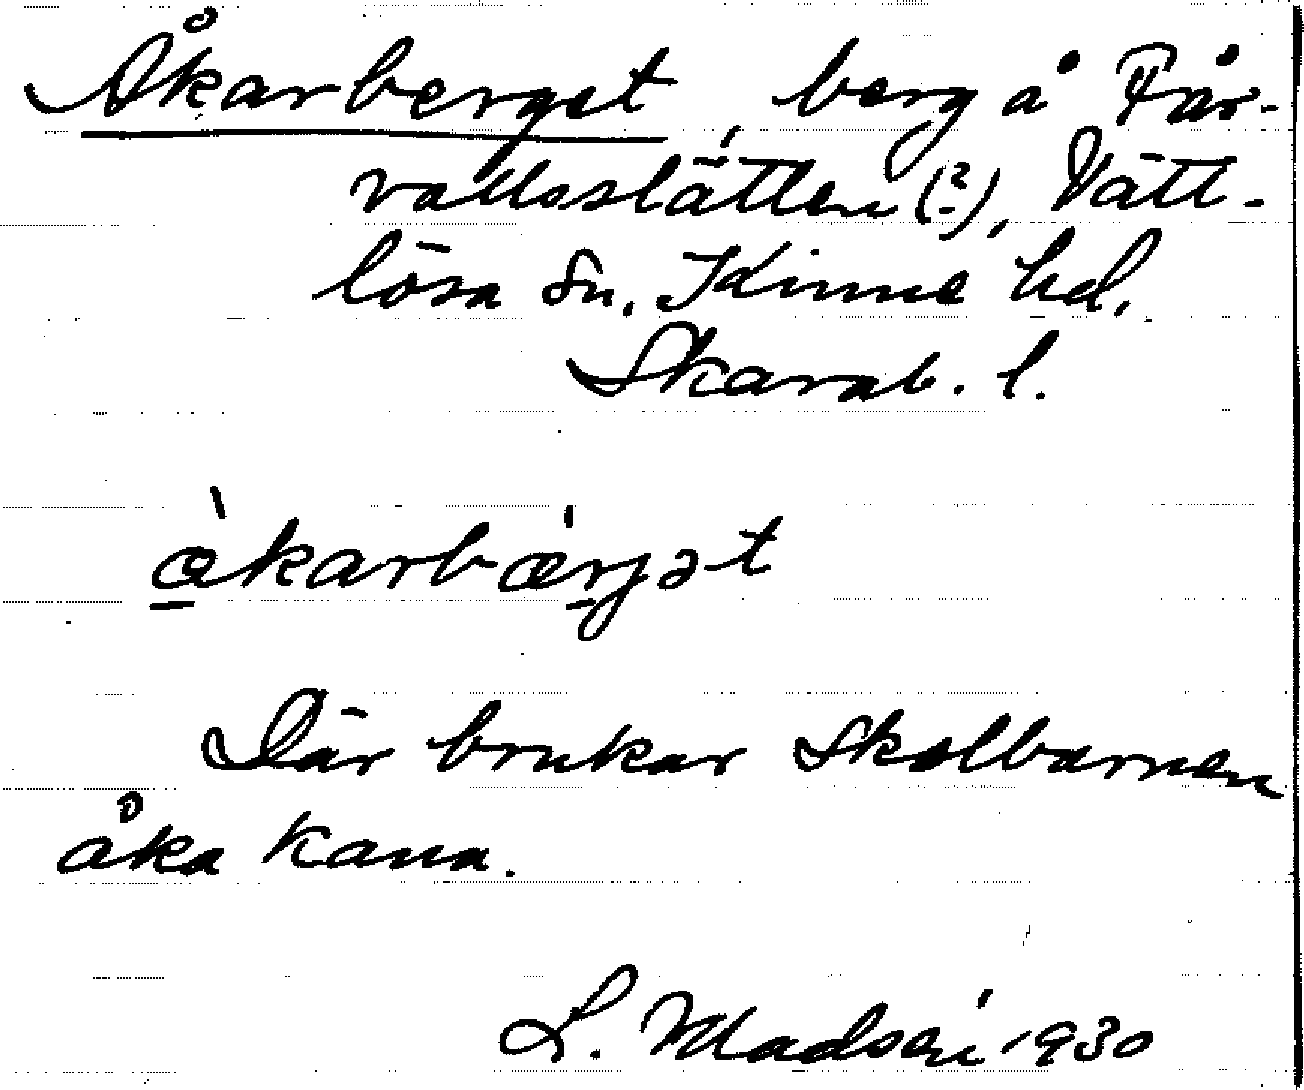 Åkarberget, berg å Får-
vallsslätten (?), Vätt-
lösa sn. Kinne hd,
Skarab. l.
àkarbær̠jət
Där brukar skolbarnen
åka kana.
L. Madsén 1930